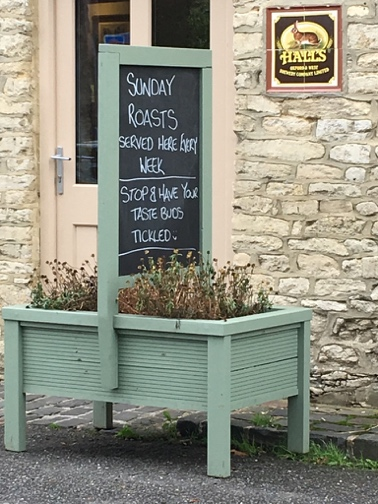 SUNDAY
ROASTS
SERVED HERE EVERY
WEEK
STOP & HAVE YOUR
TASTE BUDS
TICKLED
HALL'S
OXFORD & WEST
BREWERY COMPANY LIMITED